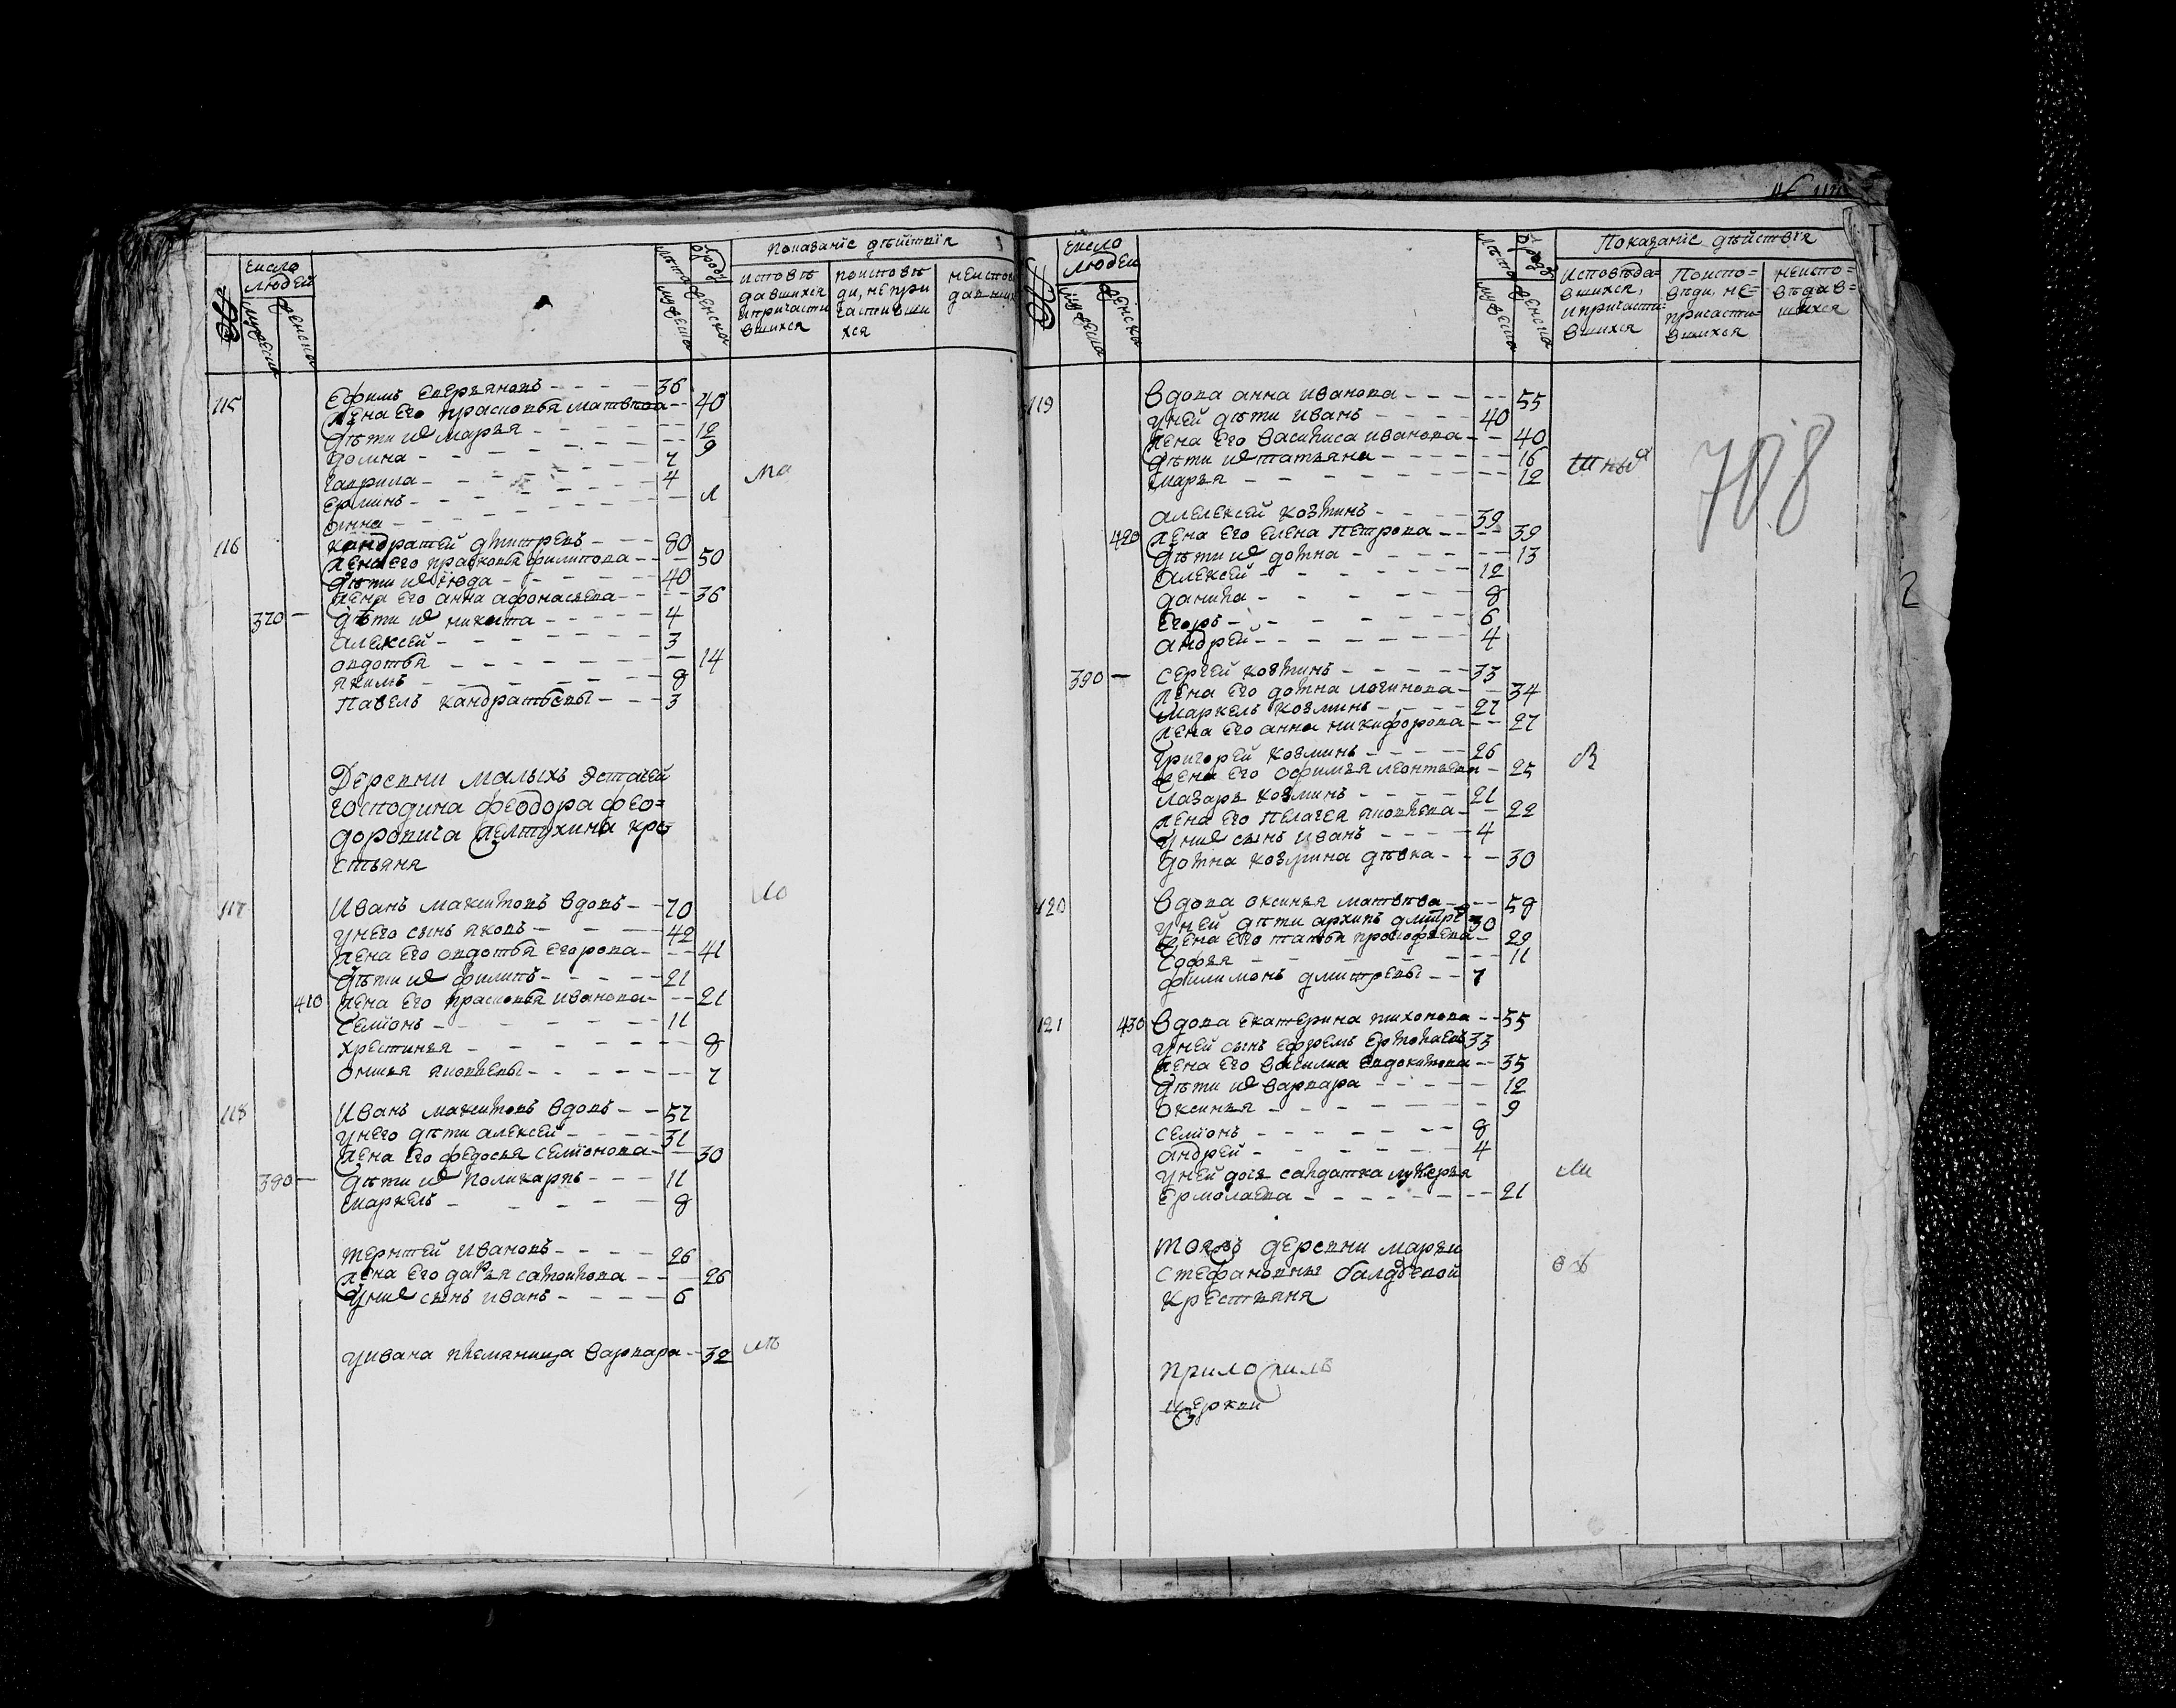 Число людей
мужеска
женска
Лѣта
мужеска
О роду
женска
Показаніе дѣйствїя
исповѣ
давшихся
ипричасти
вшихся
поисповѣ
ди, непри
частивши
хся
115 Ефимъ Аверьяновъ 36
Жена Его прасковья матвѣева 40
Дѣти их марья 12
Домна 9
Гаврила 7
Ермилъ 4
Анна
Ма
116 кандратей дмитревъ 80
жена Его прасковья филипова 50
Дѣти их июда 40
жена Его анна афонасьева 36
370 Дѣти их никита 4
Алексей 3
овдотья 14
якимъ 8
Павелъ кандратьевы 3
Деревни малыхъ
господина феодора фео=
доровича желтухина кре
стьяня
117 Иванъ макситовъ вдовъ 70
Унего сынъ яковъ 42
жена Его овдотья Егорова 41
Дѣти их филипъ 21
410 жена Его прасковья иванова 21
Семїонъ 11
Хрестинья 8
Онисья яковлевы 7
118 Иванъ макситовъ вдовъ 57
Унего дѣти алексей 31
жена Его федосья семїонова 30
380 Дѣти их поликарпъ 11
маркелъ 8
терентей ивановъ 26
жена Его дарья самойлова 26
Уних сынъ иванъ 6
Уивана племяница варвара 32
Число
людей
мужеска
женска
Лѣта
мужеска
О роду
женска
Показаніе дѣйствїя
Исповѣда=
вшихся,
ипричасти=
вшихся
Поиспо=
вѣди, не=
причасти=
вшихся
неиспо=
вѣдав=
шихся
119 Вдова анна иванова 55
Уней дѣти иванъ 40
жена Его василиса иванова 40
Дѣти их татьяна 16
марья 12
788
Алексей козминъ 39
420 жена Его Елена Петрова 39
Дѣти их домна 13
Алексей 12
данила 8
Егоръ 6
андрей 4
2
390 Сергей козминъ 33
жена Его домна логинова 34
Маркелъ козминъ 27
жена Его анна никифорова 27
Григорей козминъ 26
жена Его офимья леонтьева 25
Лазарь козминъ 21
жена Его Пелагея яковлева 22
Уних сынъ иванъ 4
Домна козмина дѣвка 30
120 Вдова оксинья матвѣева 58
Уней дѣти архипъ дмитре 30
жена Его татья прокофьева 29
Софья 11
филимонъ дмитревы 7
121 430 Вдова Екатерина тихонова 55
Уней сынъ Ефремъ Ермолаевъ 33
жена Его василиса Евдокимова 35
Дѣти их варвара 12
Оксинья 9
Семїонъ 8
Андрей 4
Уней дочь салдатка лукерья
Ермолаева 21
Тояжъ деревни марьи
Стефановны балдѣевой
Крестьяня
приложилъ
церкви